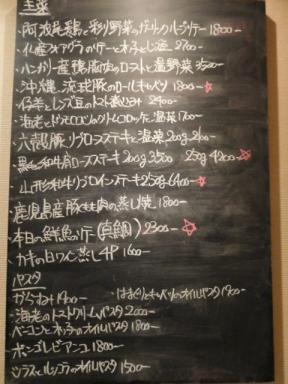 主菜
・阿波尾鶏と彩り野菜のガーリックハーブソテー 1800-
・仏産フォアグラのソテーと 2700-
・ハンガリー産鴨胸肉のローストと温野菜 3500
・沖縄 琉球豚のロールキャベツ 1800-☆
・仔羊とレンズ豆のトマト煮込み 2400-
・海老と クリームコロッケと温菜 1700-
・六穀豚リブロースステーキと温菜 200g
・黒毛和牛 ロースステーキ 200g 3500 250g 4200-☆
・山形和牛リブロインステーキ 250g 6400-☆
・鹿児島産豚もも肉の蒸し焼 1800-
・本日の鮮魚のソテー(真鯛) 2300-☆
・カキの白ワイン蒸し4P 1600-
パスタ
・からすみ 1900-
・はまぐりとキャベツのオイルパスタ 1900-
・海老のトマトクリームパスタ 2000-
・ベーコンと のオイルパスタ 1800-
・ボンゴレビアンコ 1800-
・シラスとルッコラのオイルパスタ 1500-